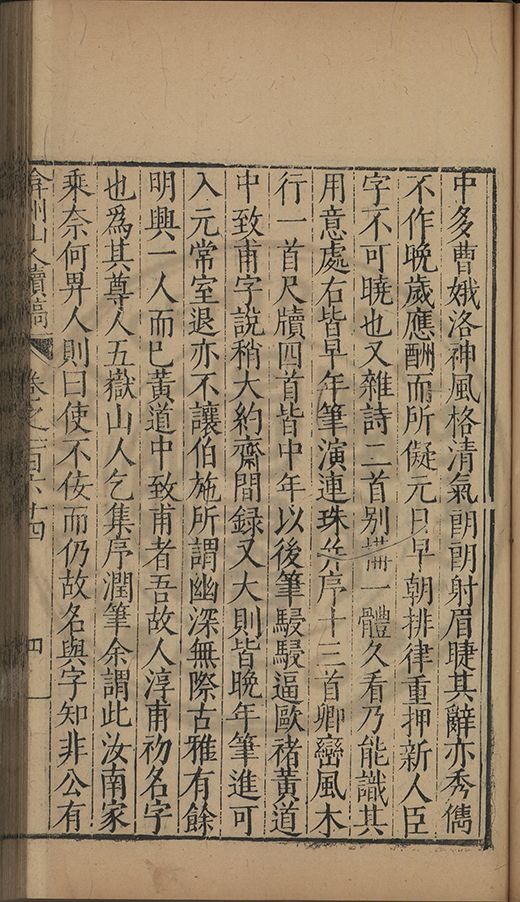 中多曹娥洛神風格清氣朗朗射眉睫其辭亦秀儁
不作晚歲應酬而所儗元日早朝排律重押新人臣
字不可曉也又雜詩二首别搆一體久看乃能識其
用意處右皆早年筆演連珠并序十三首卿巒風木
行一首尺牘四首皆中年以後筆駸駸逼歐褚黃道
中致甫字說稍大約齋間録又大則皆晚年筆進可
入元常室退亦不讓伯施所謂幽深無際古雅有餘
明興一人而已黃道中致甫者吾故人淳甫初名字
也爲其尊人五嶽山人乞集序潤筆余謂此汝南家
乘奈何畀人則曰使不佞而仍故名與字知非公有
弇州山人續稿 卷之一百六十四 四